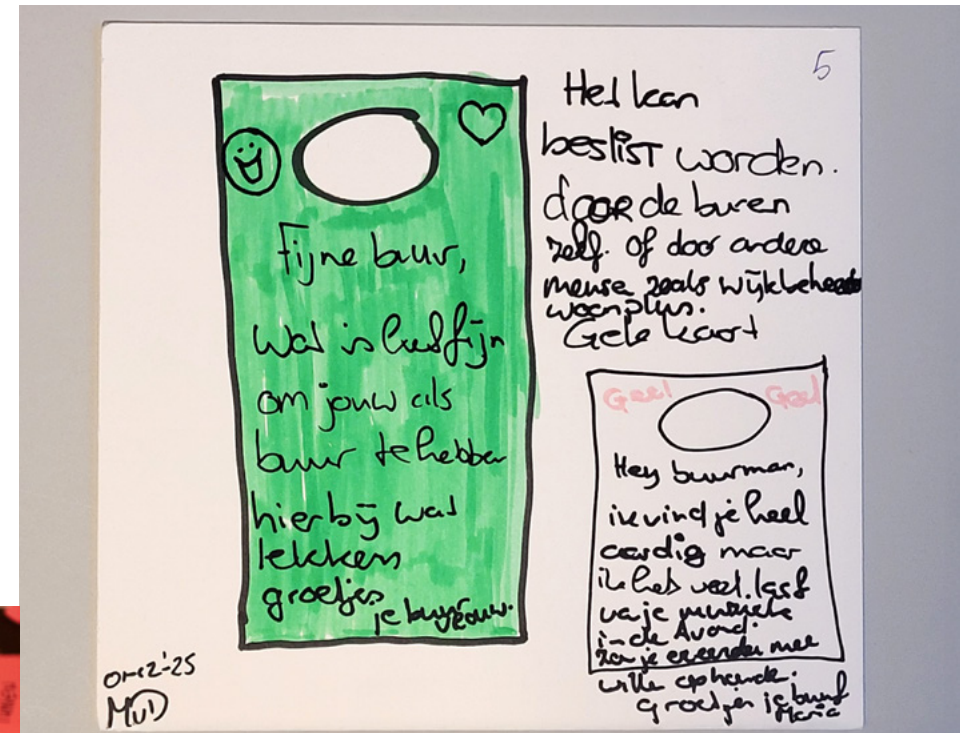 5
Fijne buur,
Wat is het fijn
om jouw als
buur te hebben
hierbij wat
lekkers
groetjes
je buurvrouw.
Het kan
beslist worden.
door de buren
zelf. of door andere
mense zoals wijkbeheer
woonplus.
Gele kaart
Geel Geel
Hey buurman,
ik vind je heel
aardig maar
ik heb veel last
va je muziek
in de Avond.
zou je eronder mee
wille ophoude.
groetjes je buuf
Maria
01-12-'25
MvD